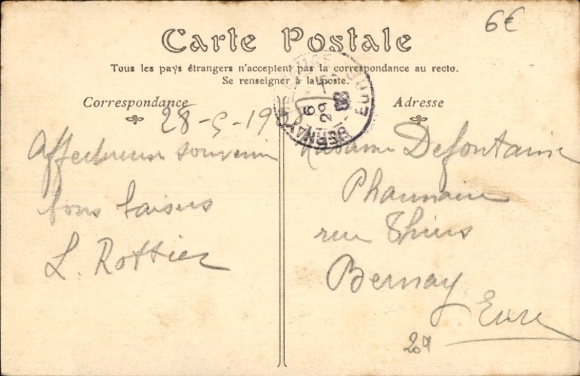 6€
Carte Postale
Tous les pays étrangers n'acceptent pas la correspondance au recto.
Se renseigner à la poste.
Correspondance
Adresse
BERNAY EURE
6
29 -5
08
28-5-1908
Affectueux souvenir
bons baisers
L. Rottier
Madame Defontaine
Pharmacie
rue Thiers
Bernay
Eure